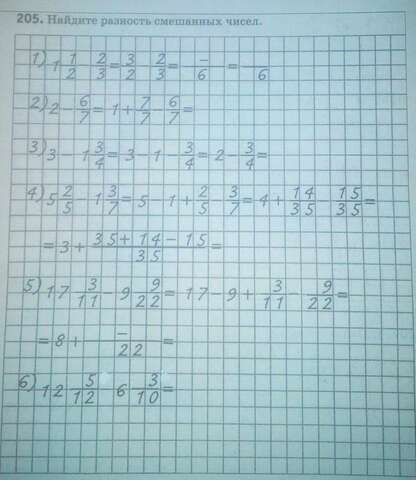 205. Найдите разность смешанных чисел.
1) 1 1/2 - 2/3 = 3/2 - 2/3 = (  -  )/6 = /6
2) 2 - 6/7 = 1 + 7/7 - 6/7 =
3) 3 - 1 3/4 = 3 - 1 - 3/4 = 2 - 3/4 =
4) 5 2/5 - 1 3/7 = 5 - 1 + 2/5 - 3/7 = 4 + 14/35 - 15/35 =
= 3 + (35 + 14 - 15)/35 =
5) 17 3/11 - 9 9/22 = 17 - 9 + 3/11 - 9/22 =
= 8 + (  -  )/22 =
6) 12 5/12 - 6 3/10 =